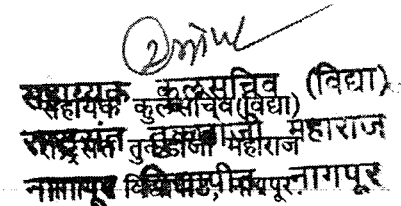 सहाय्यक कुलसचिव (विद्या)
सहायक कुलसचिव (विद्या)
राष्ट्रसंत तुकडोजी महाराज
राष्ट्रसंत तुकडोजी महाराज
नागपूर विद्यापीठ, नागपूर
नागपूर विद्यापीठ, नागपूर.